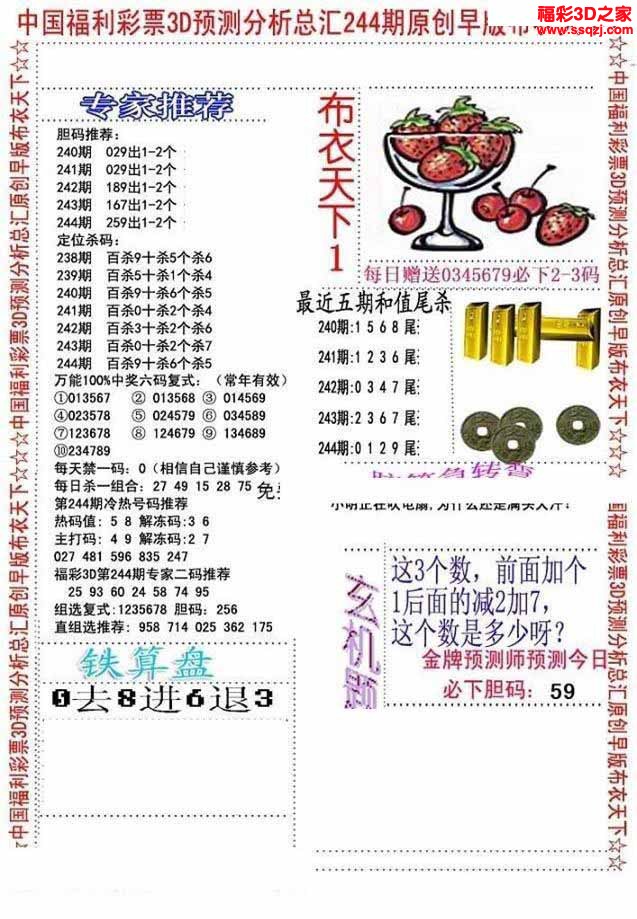 中国福利彩票3D预测分析总汇244期原创早版布
福彩3D之家
www.ssqzj.com
☆☆中国福利彩票3D预测分析总汇原创早版布衣天下☆☆☆中国福利彩票3D预测分析总汇原创早版布衣天下☆☆
专家推荐
胆码推荐:
240期 029出1-2个
241期 029出1-2个
242期 189出1-2个
243期 167出1-2个
244期 259出1-2个
定位杀码:
238期 百杀9十杀5个杀6
239期 百杀5十杀1个杀4
240期 百杀9十杀6个杀5
241期 百杀0十杀2个杀4
242期 百杀3十杀2个杀6
243期 百杀0十杀2个杀7
244期 百杀9十杀6个杀5
万能100%中奖六码复式:（常年有效）
①013567 ② 013568 ③ 014569
④023578 ⑤ 024579 ⑥ 034589
⑦123678 ⑧ 124679 ⑨ 134689
⑩234789
每天禁一码: 0（相信自己谨慎参考）
每日杀一组合: 27 49 15 28 75
第244期冷热号码推荐
热码值: 5 8 解冻码:3 6
主打码: 4 9 解冻码:2 7
027 481 596 835 247
福彩3D第244期专家二码推荐
25 93 60 24 58 74 95
组选复式:1235678 胆码: 256
直组选推荐: 958 714 025 362 175
铁算盘
0去8进6退3
布衣天下1
每日赠送0345679必下2-3码
最近五期和值尾杀
240期:1 5 6 8 尾
241期:1 2 3 6 尾
242期:0 3 4 7 尾
243期:2 3 6 7 尾
244期:0 1 2 9 尾
玄机题
这3个数，前面加个
1后面的减2加7，
这个数是多少呀？
金牌预测师预测今日
必下胆码: 59
☆☆中国福利彩票3D预测分析总汇原创早版布衣天下☆☆
国福利彩票3D预测分析总汇原创早版布衣天下☆☆